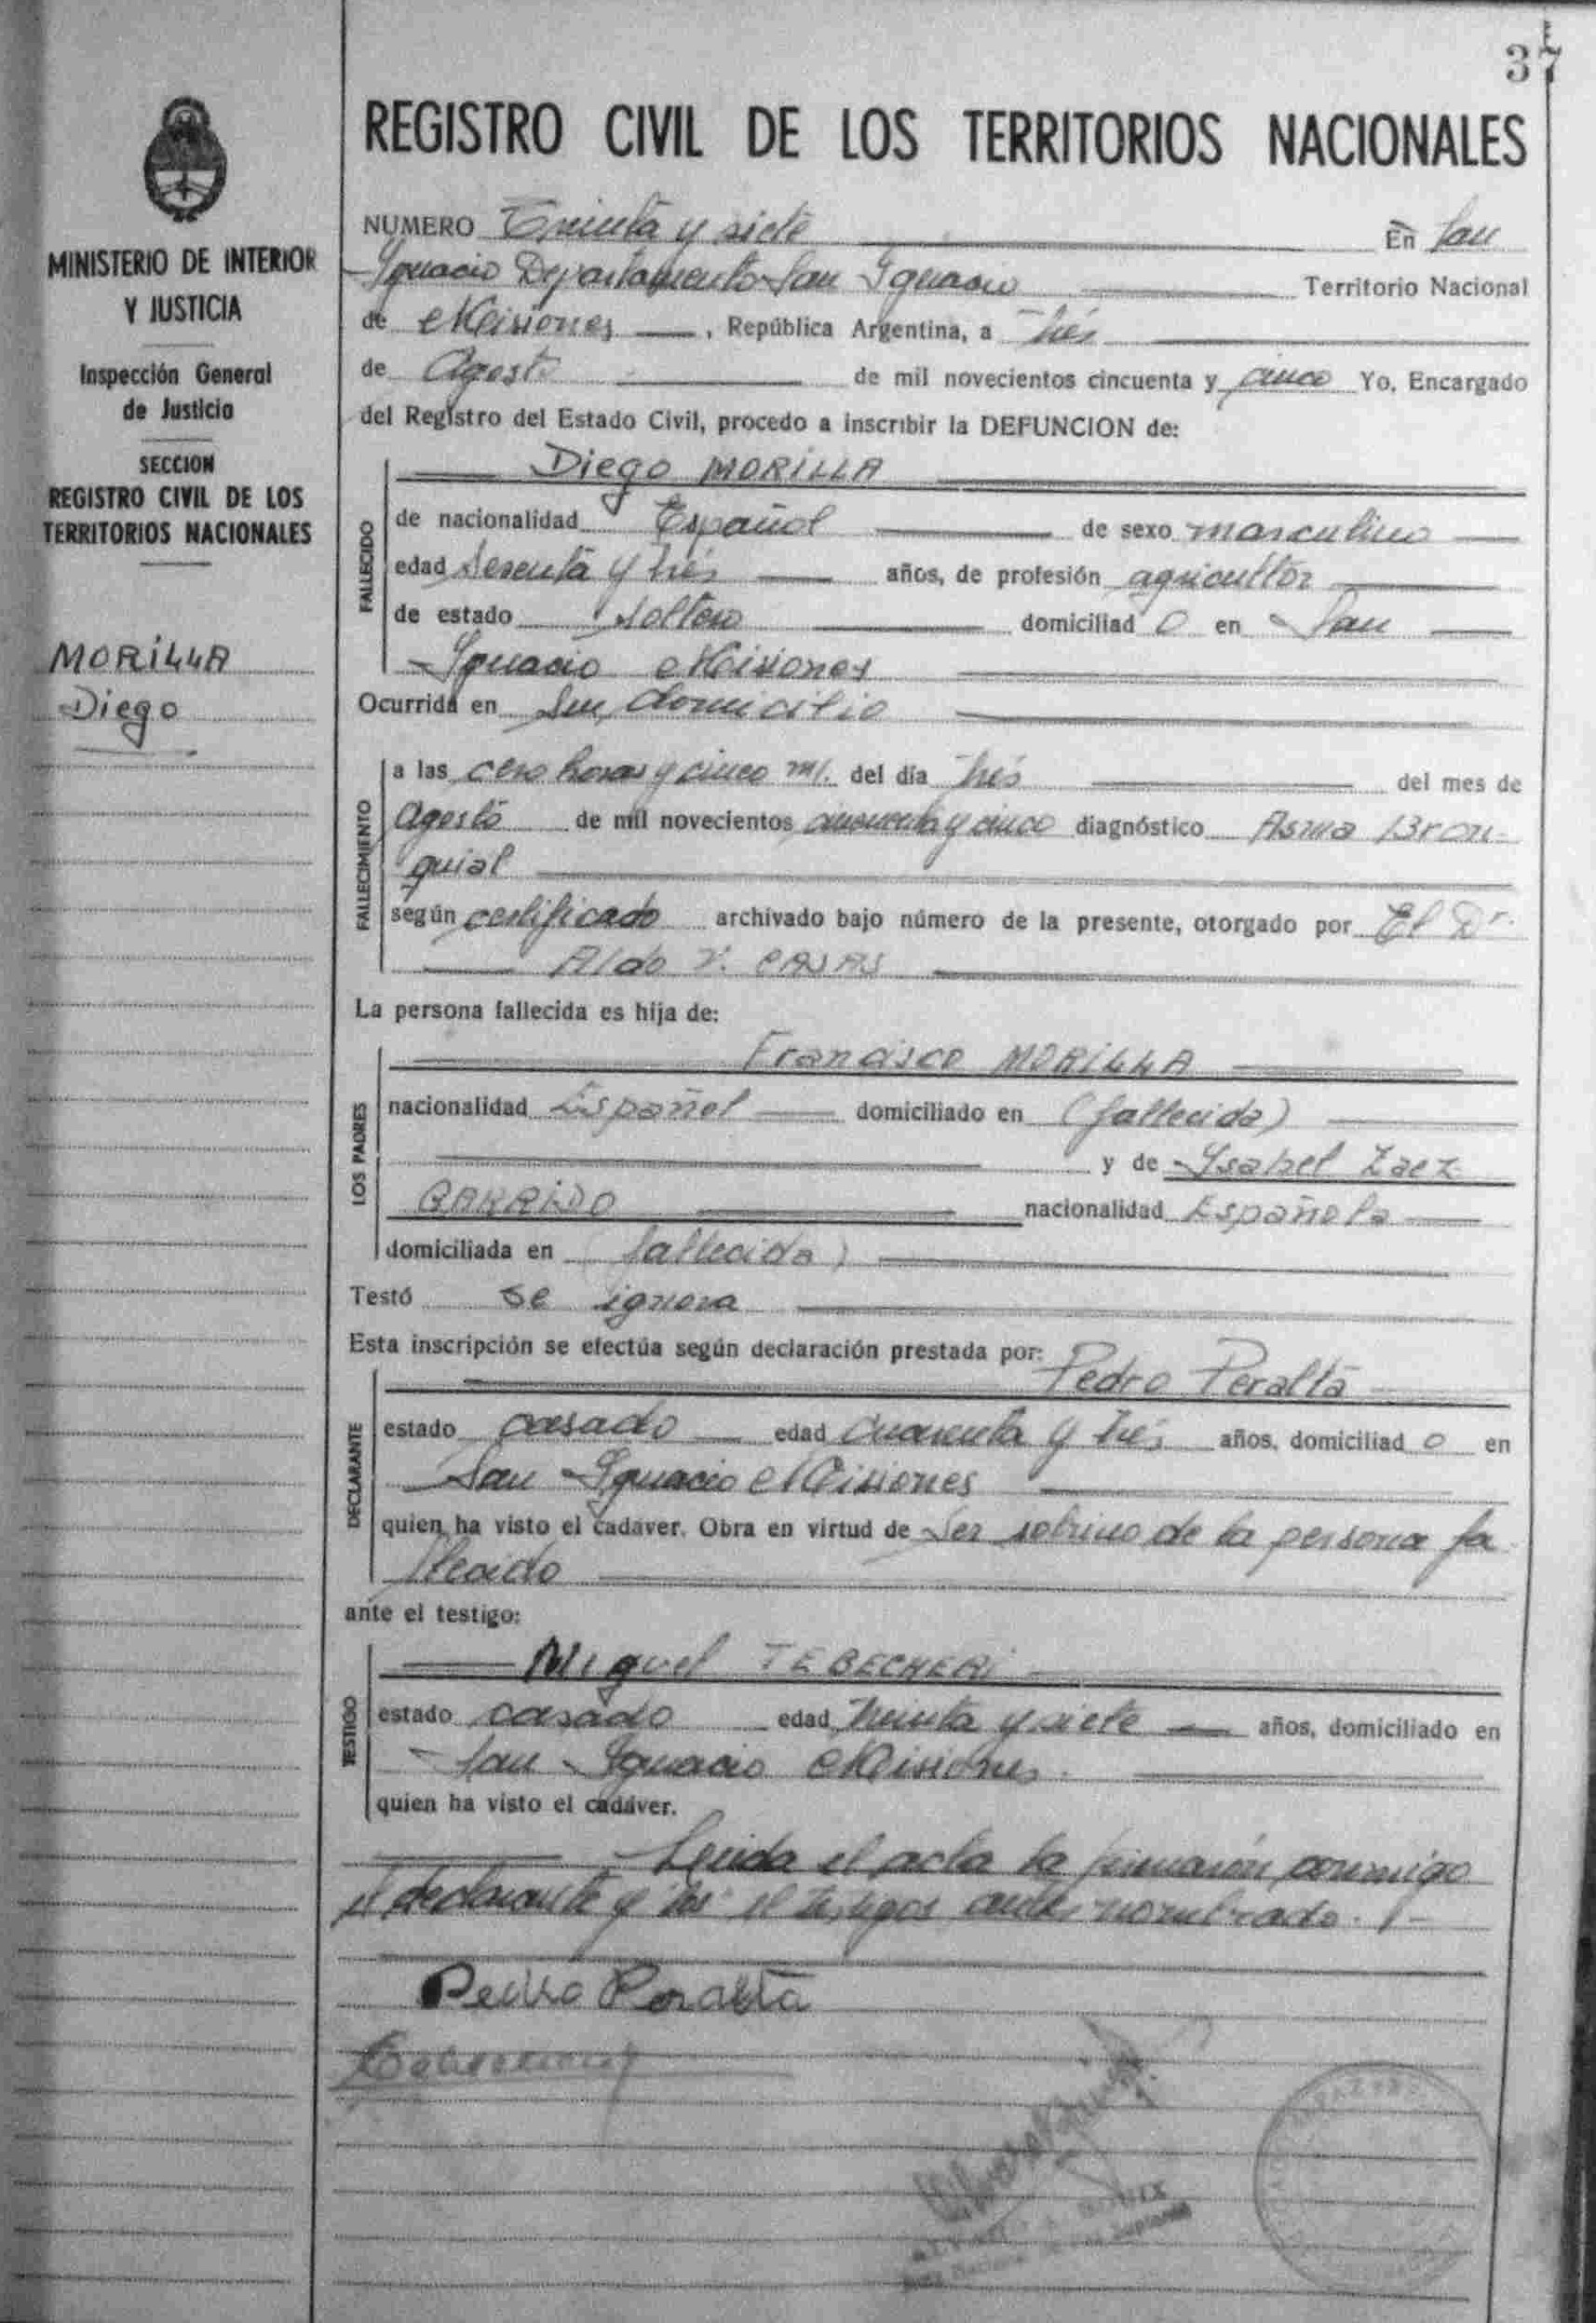 37
REGISTRO CIVIL DE LOS TERRITORIOS NACIONALES
MINISTERIO DE INTERIOR
Y JUSTICIA
Inspección General
de Justicia
SECCION
REGISTRO CIVIL DE LOS
TERRITORIOS NACIONALES
MORiLLA
Diego
NUMERO Treinta y siete En San
Ignacio Departamento San Ignacio Territorio Nacional
de Misiones, República Argentina, a trés
de Agosto de mil novecientos cincuenta y cinco Yo, Encargado
del Registro del Estado Civil, procedo a inscribir la DEFUNCION de:
Diego MORiLLA
FALLECIDO
de nacionalidad Español de sexo masculino
edad Sesenta y trés años, de profesión agricultor
de estado Soltero domiciliad o en San
Ignacio Misiones
Ocurrida en Su domicilio
FALLECIMIENTO
a las cero horas y cinco m/. del día trés del mes de
Agosto de mil novecientos cincuenta y cinco diagnóstico Asma Bron-
quial
según certificado archivado bajo número de la presente, otorgado por El Dr.
Aldo V. CASAS
La persona fallecida es hija de:
LOS PADRES
Francisco MORiLLA
nacionalidad Español domiciliado en (fallecido)
y de Ysabel Zaez
GARRiDO nacionalidad Española
domiciliada en (fallecida)
Testó se ignora
Esta inscripción se efectúa según declaración prestada por:
Pedro Peralta
DECLARANTE
estado casado edad cuarenta y trés años, domiciliad o en
San Ignacio Misiones
quien ha visto el cadáver. Obra en virtud de Ser sobrino de la persona fa-
llecido
ante el testigo:
TESTIGO
Miguel TEBECHERi
estado casado edad treinta y siete años, domiciliado en
San Ignacio Misiones.
quien ha visto el cadáver.
Leida el acta la firmarón conmigo
el declarante y el testigos antes nombrado.
Pedro Peralta